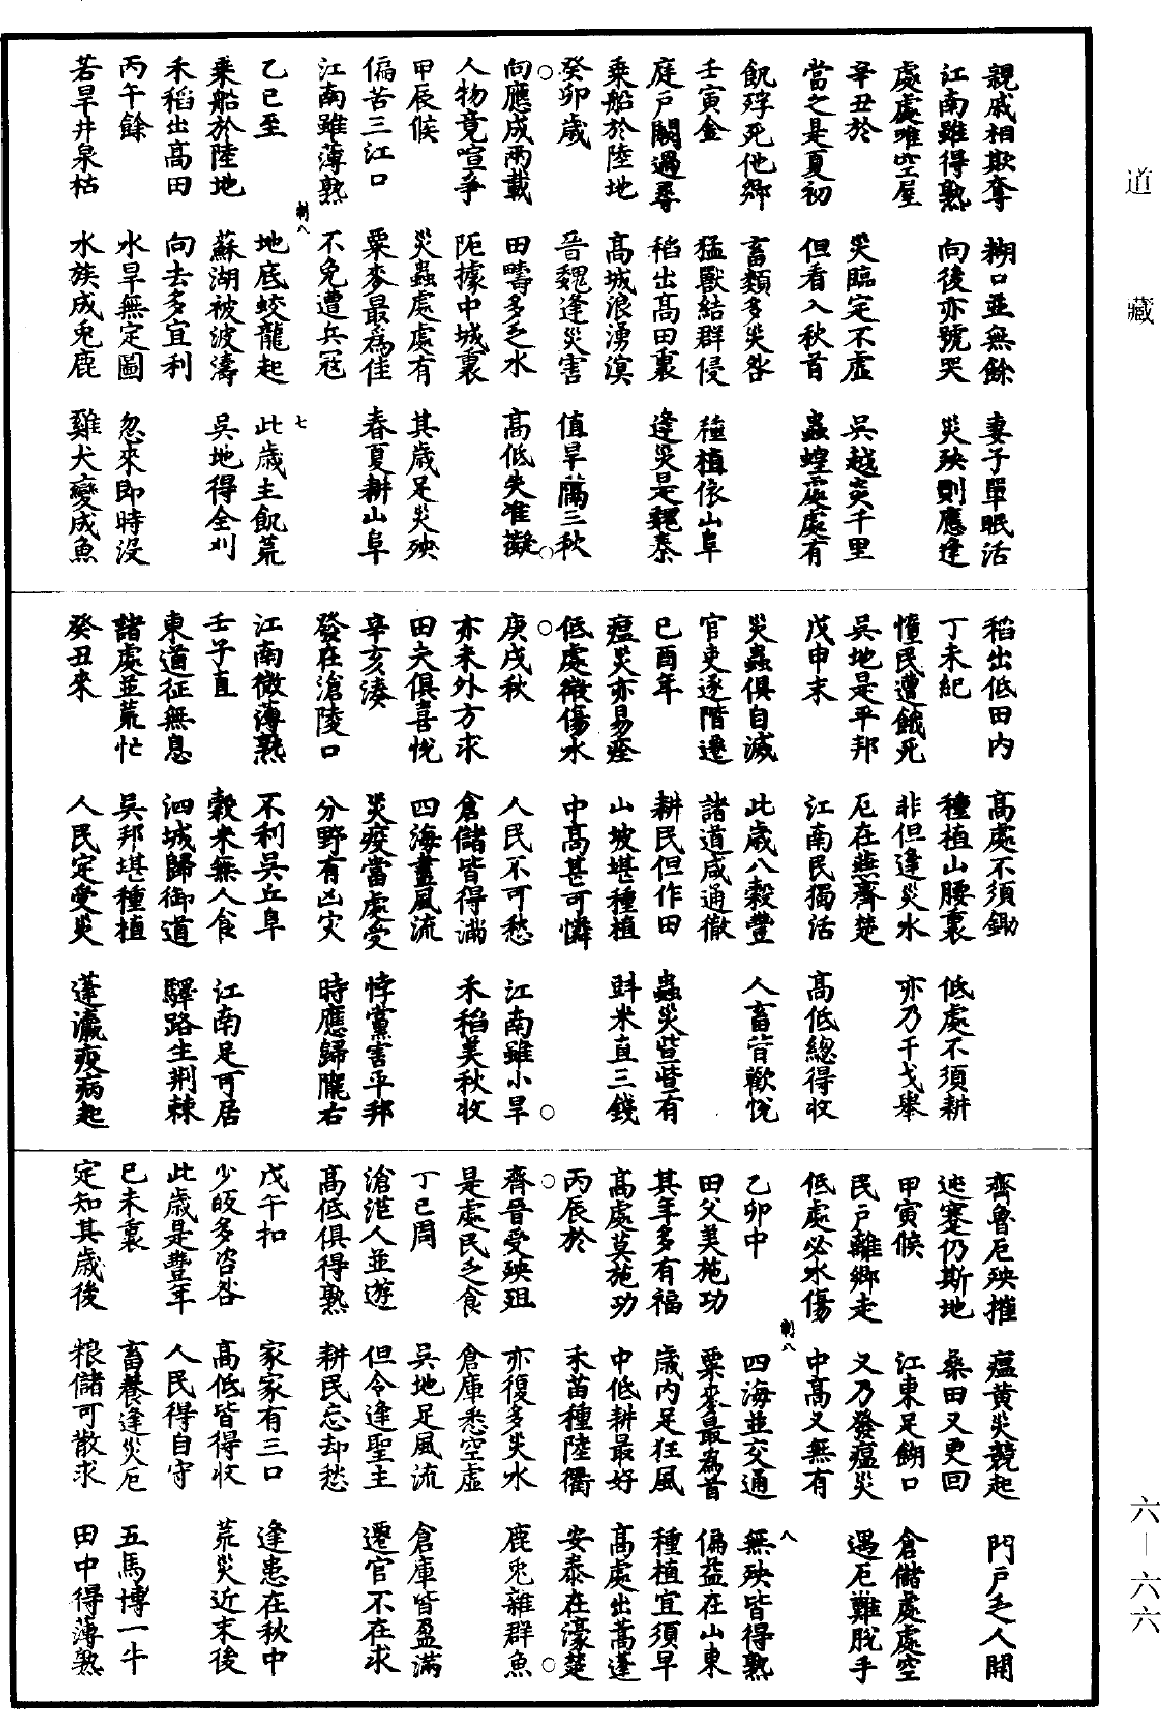 道藏
親戚相欺奪　糊口並無餘　妻子單眠活
江南雖得熟　向後亦號哭　災殃則應逢
處處唯空屋
辛丑於　災臨定不虛　吳越炎千里
當之是夏初　但看入秋首　蟲蝗處處有
飢殍死他鄉　畜類多災咎
壬寅金　猛獸結群侵　種植依山阜
庭戶闕過尋　稻出高田裏　逢災是魏秦
乘船於陸地　高城浪湧溟
癸卯歲　晉魏逢災害　值旱隔三秋
向應成兩載　田疇多乏水　高低失准擬
人物竟喧爭　阨據中城裏
甲辰候　災蟲處處有　其歲足災殃
偏苦三江口　粟麥最爲佳　春夏耕山阜
江南雖薄熟　不免遭兵冦
乙巳至　地底蛟龍起　此歲主飢荒
乘船於陸地　蘇湖被波濤　吳地得全刈
禾稻出高田　向去多宜利
丙午餘　水旱無定圖　忽來即時沒
若旱井泉枯　水族成兎鹿　雞犬變成魚
七
稻出低田內　高處不須鋤
丁未紀　種植山腰裏　低處不須耕
憧民遭餓死　非但逢災水　亦乃干戈舉
吳地是平邦　厄在燕齊楚
戊申末　江南民獨活　高低總得收
災蟲俱自滅　此歲八穀豐　人畜皆歡悅
官吏逐階遷　諸道咸通徹
已酉年　耕民但作田　蟲災些些有
瘟災亦易痊　山坡堪種植　斟米直三錢
低處微傷水　中高甚可憐
庚戌秋　人民不可愁　江南雖小旱
亦未外方求　倉儲皆得滿　禾稻美秋收
田夫俱喜悅　四海盡風流
辛亥湊　災疫當處受　悖黨害平邦
發在滄陵口　分野有凶灾　時應歸隴右
江南微薄熟　不利吳丘阜
壬子直　穀米無人食　江南足可居
東道征無息　泗城歸御道　驛路生荆棘
諸處並荒忙　吳邦堪種植
癸丑來　人民定受災　蓬瀛疫病起
齊魯厄殃摧　瘟黄災競起　門戶乏人開
迍蹇仍斯地　桑田又更回
甲寅候　江東足餬口　倉儲處處空
民戶離鄉走　又乃發瘟災　遇厄難脫手
低處必水傷　中高又無有
乙卯中　四海並交通　無殃皆得熟
田父美施功　粟麥最為首　偏益在山東
其年多有福　歲内足狂風　種植宜須早
高處莫施功　中低耕最好　高處出蒿蓬
丙辰於　禾苗種陸衢　安泰在濠楚
齊晉受殃殂　亦復多災水　鹿兎雜群魚
是處民乏食　倉庫悉空虛
丁巳周　吳地足風流　倉庫皆盈滿
滄茫人並遊　但令逢聖主　遷官不在求
高低俱得熟　耕民忘却愁
戊午扣　家家有三口　逢患在秋中
少皈多咨咎　高低皆得收　荒災近末後
此歲是豐年　人民得自守
已未裏　畜養逢災厄　五馬博一牛
定知其歲後　粮儲可散求　田中得薄熟
八
六—六六